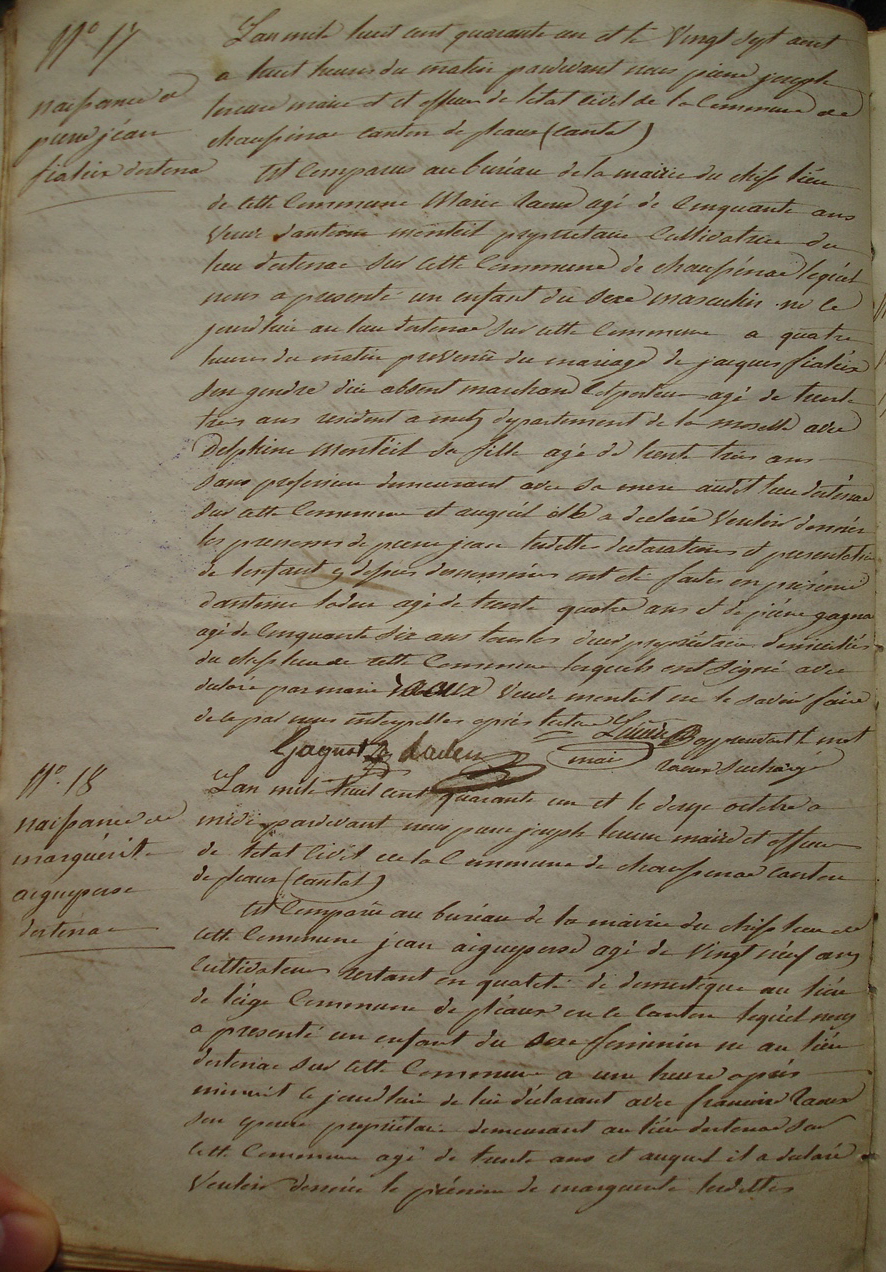 N° 17
naissance de
pierre jéan
fialeix destenac
L'an mile huit cent quarante un et le Vingt Sept aout
a huit heures du matin pardevant nous pierre joseph
maire et officier de létat civil de la Commune de
chaussenac canton de pleaux (cantal)
Est Comparus au bureau de la mairie du cheff lieu
de cette Commune Marie Raoux agé de Cinquante ans
Veuve dantoine monteil propriétaire Cultivatrice du
lieu destenac Sur cette Commune de chaussénac lequél
nous a présenté un enfant du Sexe masculin né ce
jourdhui au lieu destenac Sur cette Commune a quatre
heures du matin provenu du mariage de jacques fialéix
Son gendre dici absent marchand Colporteur agé de trente
trois ans resident a metz département de la moselle avec
Delphine Montéil Sa fille agé de trente trois ans
Sans profession demeurant avec Sa mere audit lieu destenac
Sur cette Commune et auquél elle a déclaré Vouloir donner
les prenoms de pierre jean lesdittes déclarations et presentation
de lenfant cy dessus dénommées ont été faites en présence
dantoine ladeu agé de trente quatre ans et de piérre gagnat
agé de Cinquante Six ans tous les deux propriétaire domiciliés
du cheff lieu de cette Commune lesquels ont Signé avec
declaré par marie Raoux Veuve monteil ne le Savoir faire
de ce par nous interpellés après lecture
Gagnat Ladeu maire approuvant le mot
raoux Surchargé
N° 18
naissance de
marguérite
aigueperse
destenac
L'an mile huit cent quarante un et le douze octobre a
midi pardevant nous pierre joseph maire et officier
de létat Civil de la Commune de chaussenac canton
de pleaux (cantal)
Est Comparu au buréau de la mairie du cheff lieu de
cette Commune jean aigueperse agé de Vingt néuf ans
Cultivateur restant en qualité de domestique au lieu
de Commune de pléaux en ce Canton lequél nous
a présenté un enfant du Sexe féminin né au lieu
destenac Sur cette Commune a une heure après
minuit ce jourdhui de lui déclarant avec francoise Raoux
Son épouse propriétaire demeurant au lieu destenac Sur
cette Commune agé de trente ans et auquel il a déclaré
Vouloir donnée le prénom de marguerite lesdittes